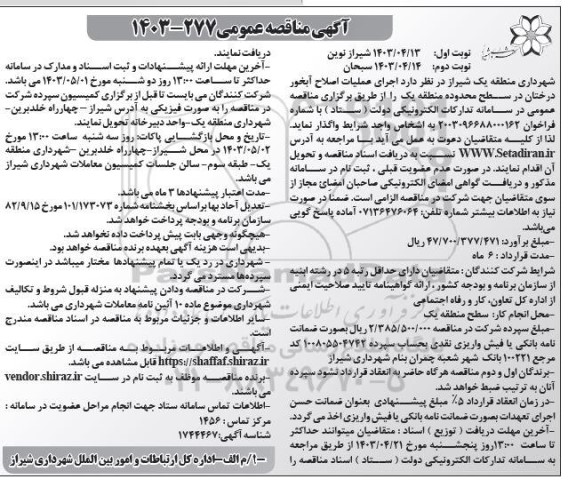 آگهی مناقصه عمومی ۲۷۷-۱۴۰۳
نوبت اول: ۱۴۰۳/۰۴/۱۳ شیراز نوین
نوبت دوم: ۱۴۰۳/۰۴/۱۴ سبحان
شهرداری منطقه یک شیراز در نظر دارد اجرای عملیات اصلاح آبخور
درختان در سطح محدوده منطقه یک را از طریق برگزاری مناقصه
عمومی در سامانه تدارکات الکترونیکی دولت (ستاد) با شماره
فراخوان ۲۰۰۳۰۹۶۶۸۸۰۰۰۱۶۲ به اشخاص واجد شرایط واگذار نماید.
لذا از کلیه متقاضیان دعوت به عمل می آید با مراجعه به آدرس
WWW.Setadiran.ir نسبت به دریافت اسناد مناقصه و تحویل
آن اقدام نمایند. در صورت عدم عضویت قبلی، ثبت نام در سامانه
مذکور و دریافت گواهی امضای الکترونیکی صاحبان امضای مجاز از
سوی متقاضیان جهت شرکت در مناقصه الزامی است. ضمناً در صورت
نیاز به اطلاعات بیشتر شماره تلفن: ۰۷۱۳۶۴۷۶۰۶۴ آماده پاسخ گویی
می‌باشد.
-مبلغ برآورد: ۴۷/۷۰۰/۳۷۷/۴۷۱ ریال
-مدت قرارداد: ۶ ماه
شرایط شرکت کنندگان: متقاضیان دارای حداقل رتبه ۵ در رشته ابنیه
از سازمان برنامه و بودجه کشور، ارائه گواهینامه تایید صلاحیت ایمنی
از اداره کل تعاون، کار و رفاه اجتماعی
-محل انجام کار: سطح منطقه یک
-مبلغ سپرده شرکت در مناقصه ۲/۳۸۵/۵۰۰/۰۰۰ ریال بصورت ضمانت
نامه بانکی یا فیش واریزی نقدی بحساب سپرده ۱۰۰۸۰۵۵۰۴۷۴۲ کد
مرجع ۱۰۰۲۲۱ بانک شهر شعبه چمران بنام شهرداری شیراز
-برندگان اول و دوم مناقصه هرگاه حاضر به انعقاد قرارداد نشود سپرده
آنان به ترتیب ضبط خواهد شد.
-در زمان انعقاد قرارداد ۵٪ مبلغ پیشنهادی بعنوان ضمانت حسن
اجرای تعهدات بصورت ضمانت نامه بانکی یا فیش واریزی اخذ می گردد.
-آخرین مهلت دریافت (توزیع) اسناد: متقاضیان میتوانند حداکثر
تا ساعت ۱۳:۰۰ روز پنجشنبه مورخ ۱۴۰۳/۰۴/۲۱ از طریق مراجعه
به سامانه تدارکات الکترونیکی دولت (ستاد) اسناد مناقصه را
دریافت نمایند.
-آخرین مهلت ارائه پیشنهادات و ثبت اسناد و مدارک در سامانه
حداکثر تا ساعت ۱۳:۰۰ روز دو شنبه مورخ ۱۴۰۳/۰۵/۰۱ می باشد.
شرکت کنندگان می بایست تا قبل از برگزاری کمیسیون سپرده شرکت
در مناقصه را به صورت فیزیکی به آدرس شیراز - چهارراه خلدبرین-
شهرداری منطقه یک-واحد دبیرخانه تحویل نمایند.
-تاریخ و محل بازگشایی پاکات: روز سه شنبه ساعت ۱۳:۰۰ مورخ
۱۴۰۳/۰۵/۰۲ در محل شیراز-چهارراه خلدبرین -شهرداری منطقه
یک- طبقه سوم- سالن جلسات کمیسیون معاملات شهرداری شیراز
می باشد.
-مدت اعتبار پیشنهادها ۳ ماه می باشد.
-تعدیل آحاد بها براساس بخشنامه شماره ۱۰۱/۱۷۳۰۷۳ مورخ ۸۲/۹/۱۵
سازمان برنامه و بودجه پرداخت خواهد شد.
-هیچگونه وجهی بابت پیش پرداخت داده نخواهد شد.
-بدیهی است هزینه آگهی بعهده برنده مناقصه خواهد بود.
- شهرداری در رد یک یا تمام پیشنهادها مختار میباشد در اینصورت
سپرده‌ها مسترد می گردد.
-شرکت در مناقصه ودادن پیشنهاد به منزله قبول شروط و تکالیف
شهرداری موضوع ماده ۱۰ آئین نامه معاملات شهرداری می باشد.
-سایر اطلاعات و جزئیات مربوط به مناقصه در اسناد مناقصه مندرج
است.
-آگهی و اطلاعات مربوط به مناقصه از طریق سایت
https://shaffaf.shiraz.ir قابل مشاهده می باشد.
-برنده مناقصه موظف به ثبت نام در سایت vendor.shiraz.ir
می باشد.
-اطلاعات تماس سامانه ستاد جهت انجام مراحل عضویت در سامانه:
مرکز تماس: ۱۴۵۶
شناسه آگهی: ۱۷۴۴۴۶۷
-۱/م الف-اداره کل ارتباطات و امور بین الملل شهرداری شیراز